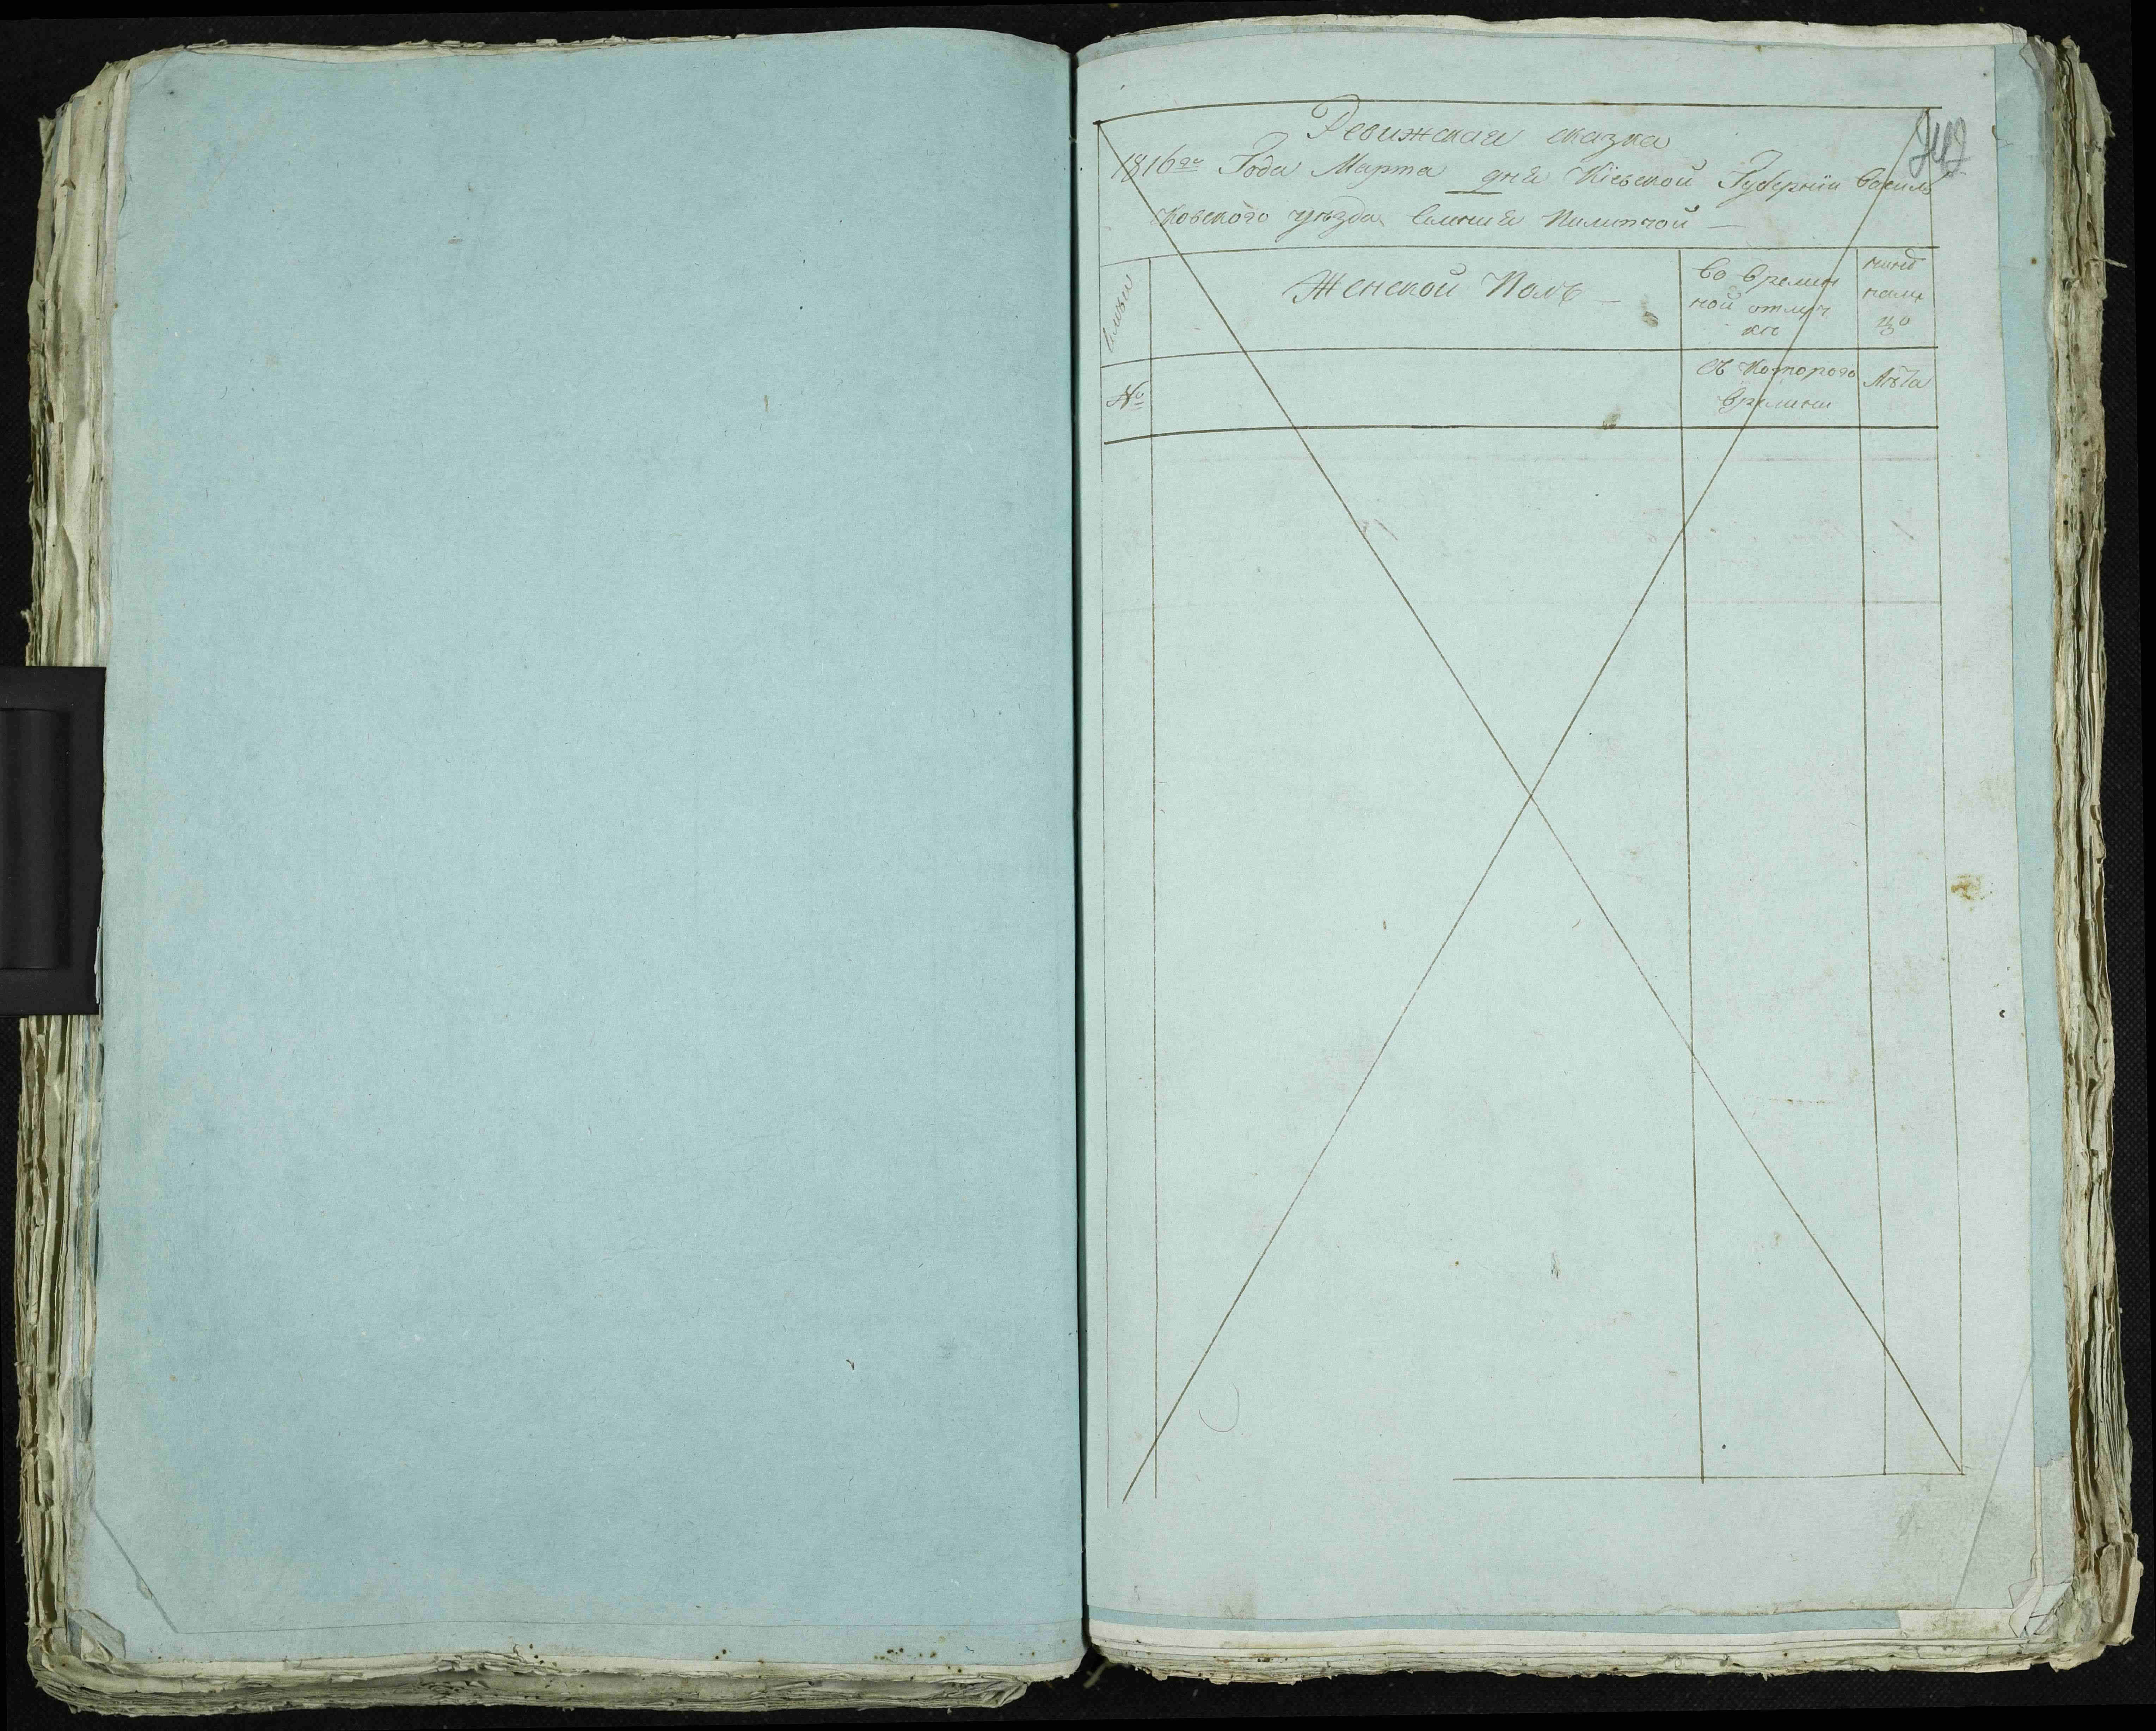 Ревижская сказка
1816го Года Марта дня Кіевской Губерніи Василь
ковского уѣзда Селенія Пилипчой
Семьи
Женской Полъ
Во Времен
ной отлуч
ке
нынѣ
на лицо
№
Съ Которого
Времени
Лѣта